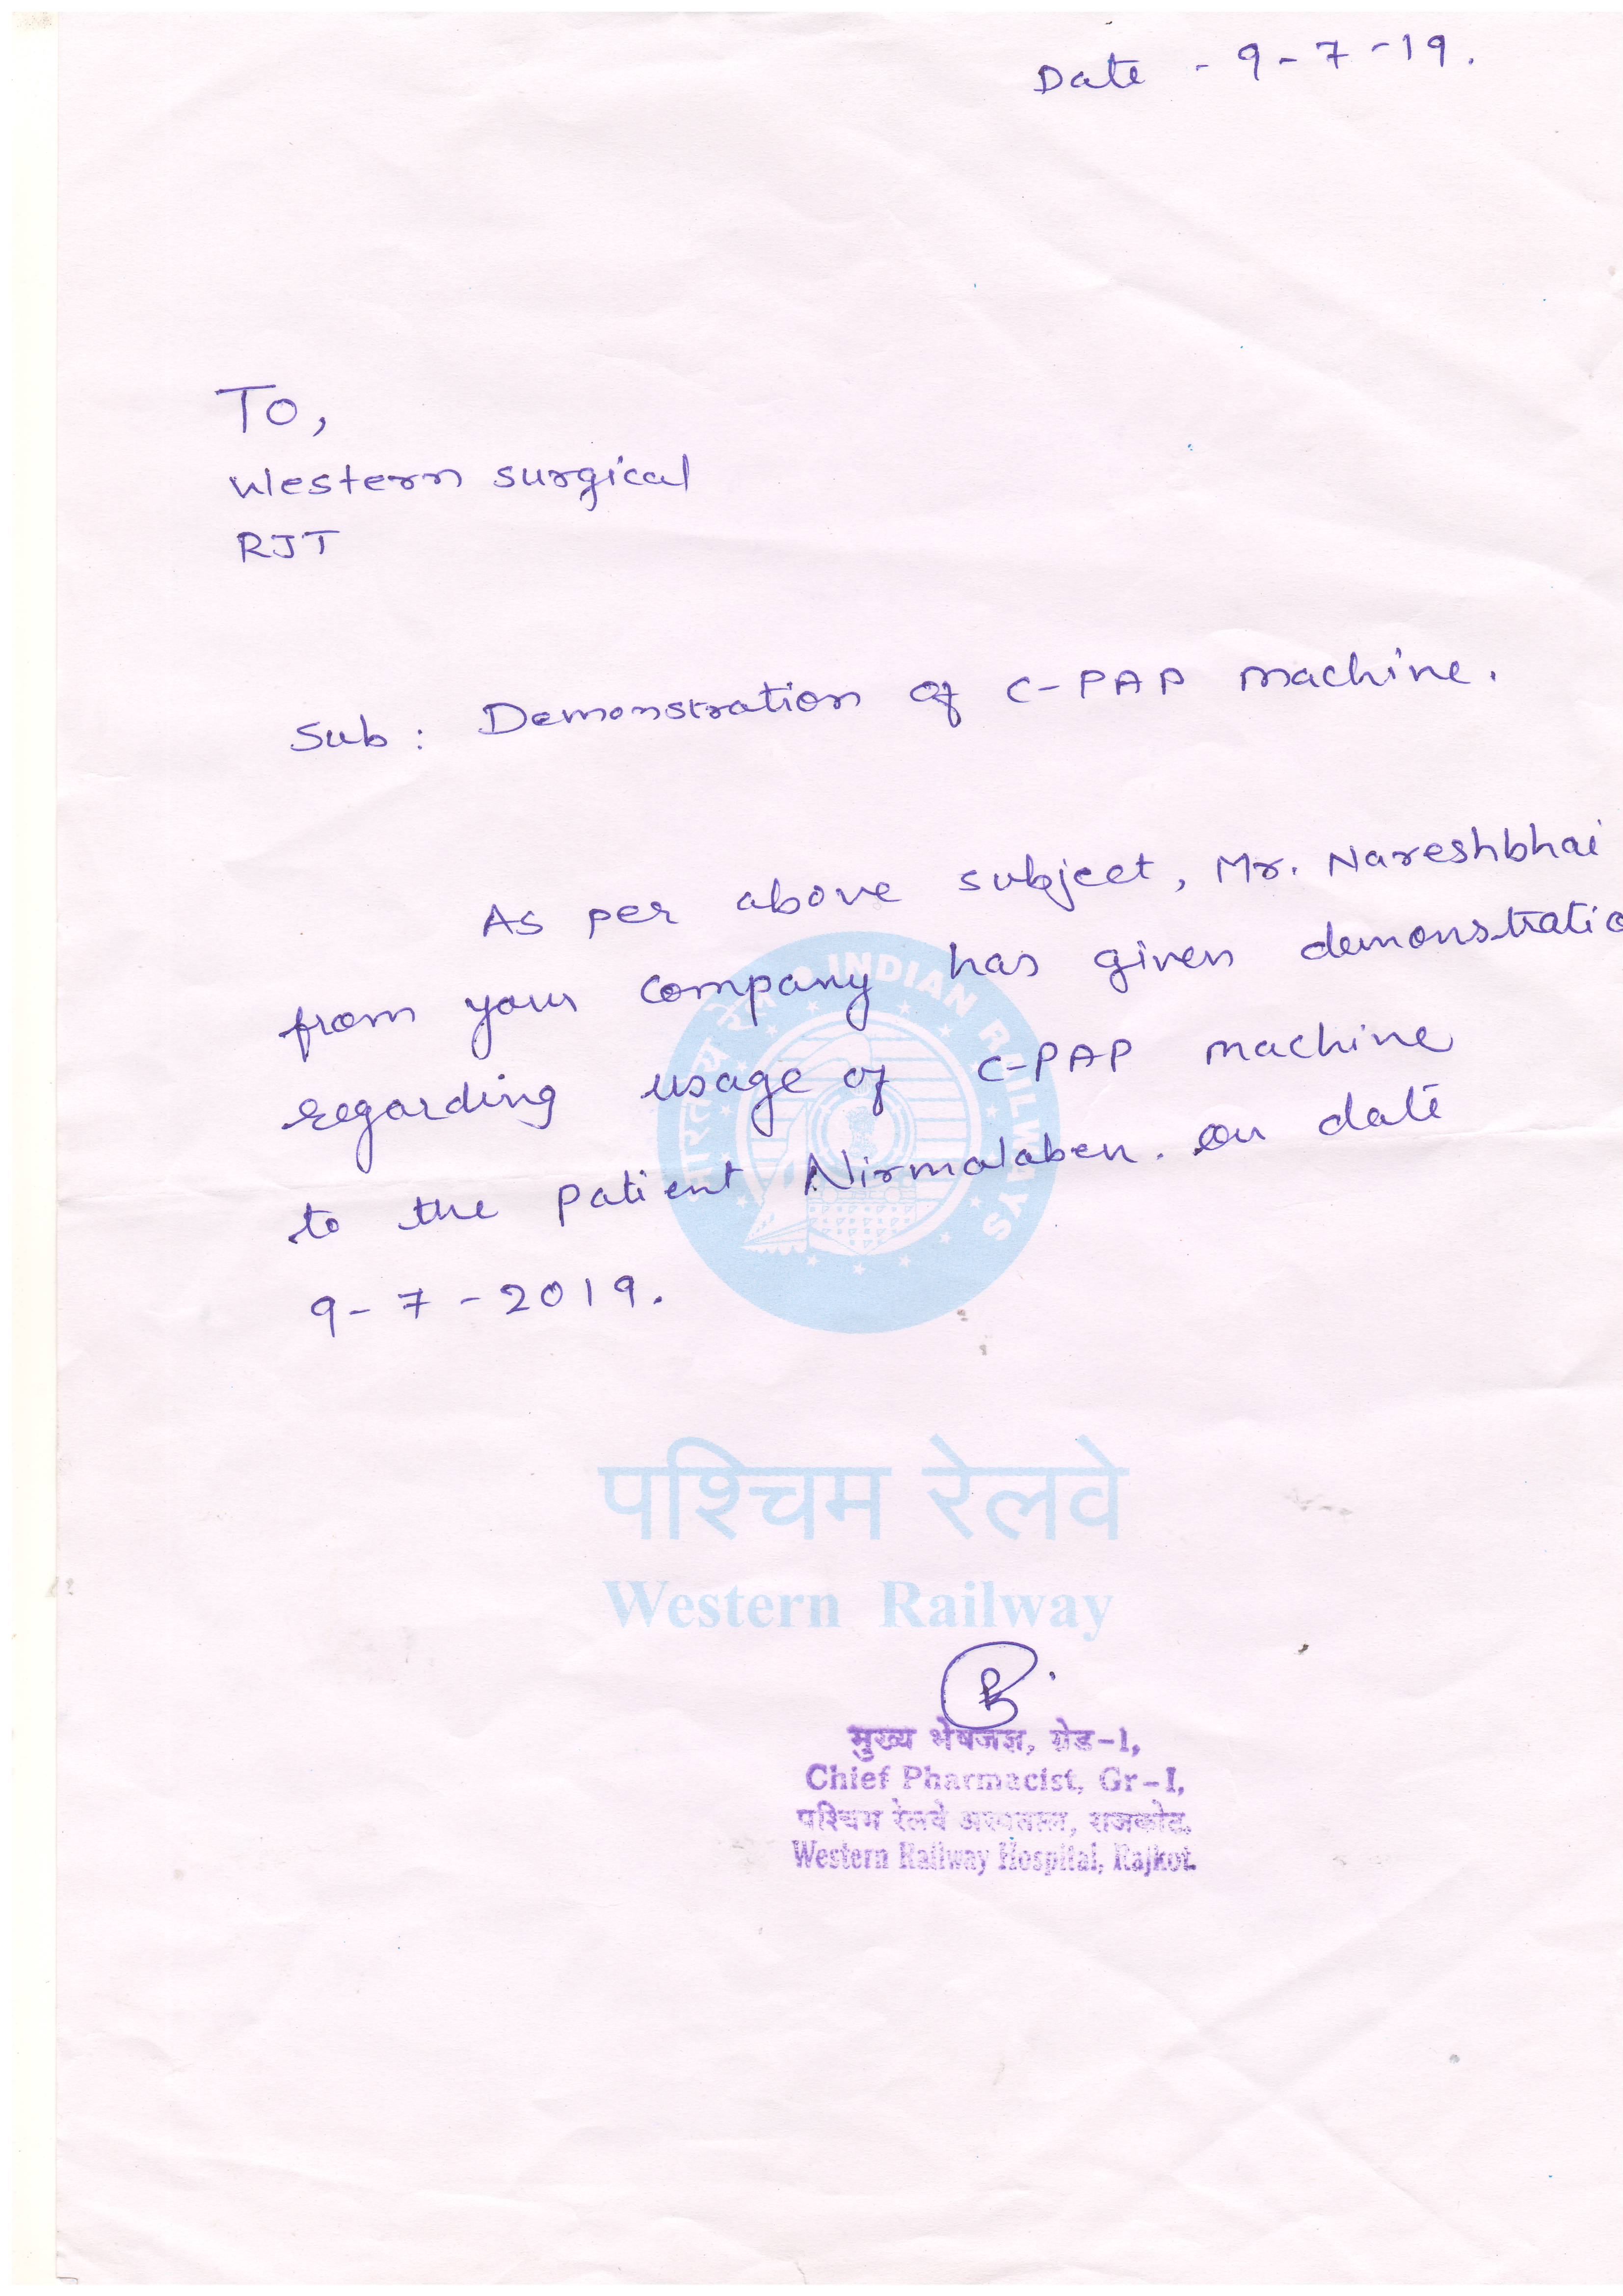 Date - 9-7-19.
To,
Western surgical
RJT
Sub : Demonstration of C-PAP machine.
As per above subject, Mr. Nareshbhai
from your company has given demonstratio
regarding usage of C-PAP machine
to the patient Nirmalaben. on date
9-7-2019.
भारतीय रेल INDIAN RAILWAYS
पश्चिम रेलवे
Western Railway
मुख्य भेषजज्ञ, ग्रेड-I,
Chief Pharmacist, Gr-I,
पश्चिम रेलवे अस्पताल, राजकोट.
Western Railway Hospital, Rajkot.